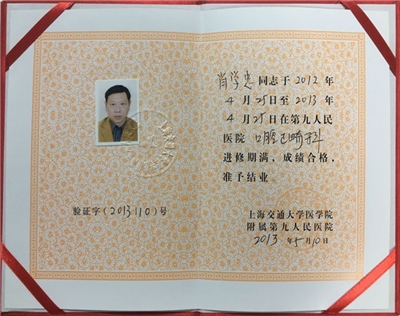 肖学忠同志于2012年
4月25日至2013年
4月25日在第九人民
医院 口腔正畸科
进修期满，成绩合格，
准予结业
验证字（2013110）号
上海交通大学医学院
附属第九人民医院
2013年5月10日